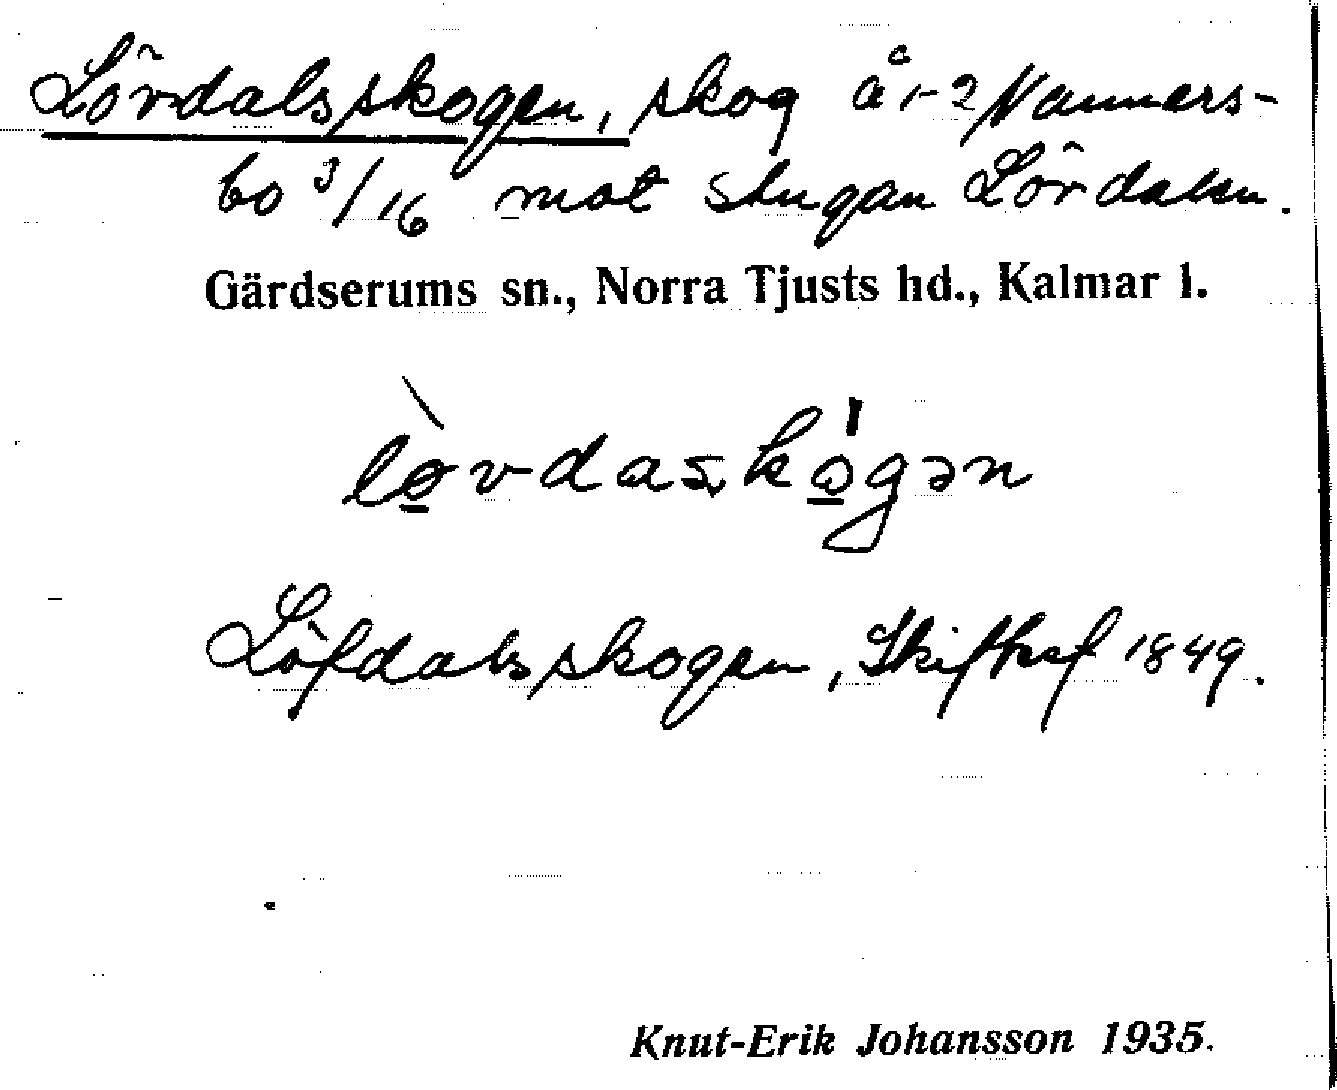 Lövdalsskogen, skog å 1-2 Vanners-
bo 3/16 mot stugan Lövdalen.
Gärdserums sn., Norra Tjusts hd., Kalmar l.
lø̀vdaskògən
Löfdalsskogen, Skiftesf 1849.
Knut-Erik Johansson 1935.